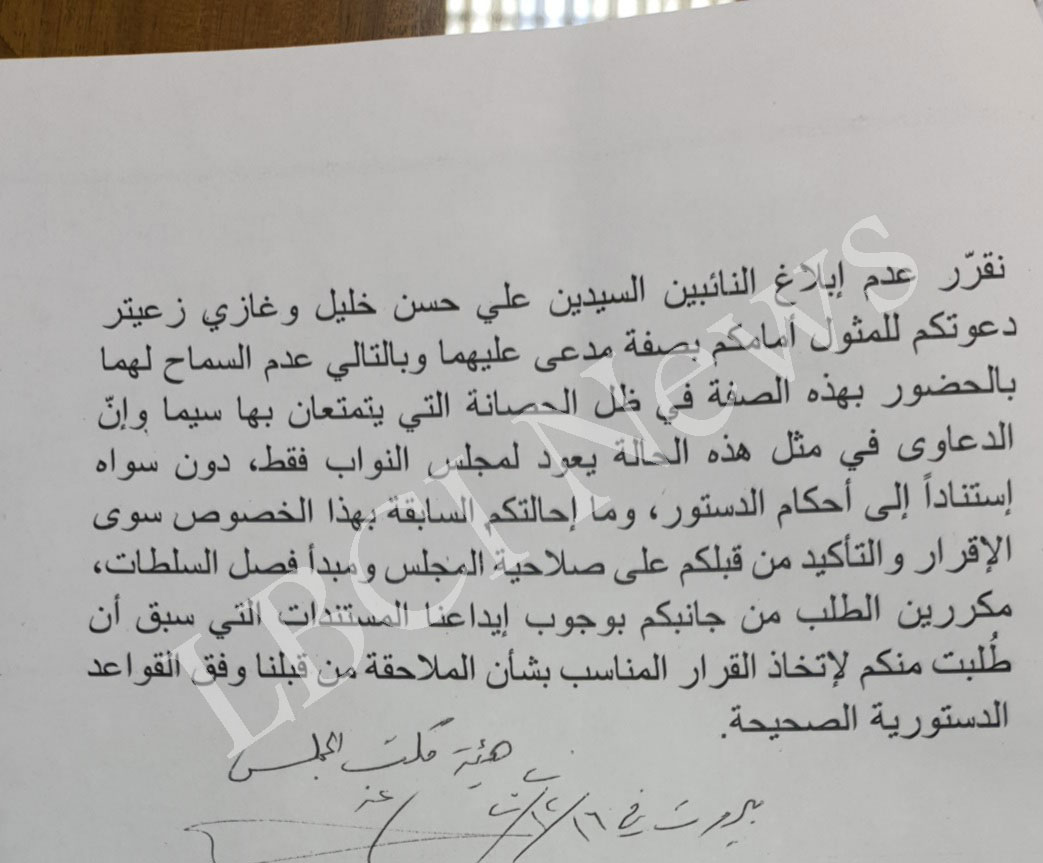 نقرّر عدم إبلاغ النائبين السيدين علي حسن خليل وغازي زعيتر
دعوتكم للمثول أمامكم بصفة مدعى عليهما وبالتالي عدم السماح لهما
بالحضور بهذه الصفة في ظل الحصانة التي يتمتعان بها سيما وإنّ
الدعاوى في مثل هذه الحالة يعود لمجلس النواب فقط، دون سواه
إستناداً إلى أحكام الدستور، وما إحالتكم السابقة بهذا الخصوص سوى
الإقرار والتأكيد من قبلكم على صلاحية المجلس ومبدأ فصل السلطات،
مكررين الطلب من جانبكم بوجوب إيداعنا المستندات التي سبق أن
طُلبت منكم لإتخاذ القرار المناسب بشأن الملاحقة من قبلنا وفق القواعد
الدستورية الصحيحة.
هيئة مكتب المجلس
بيروت في ١٦/١٢/
LBCI News